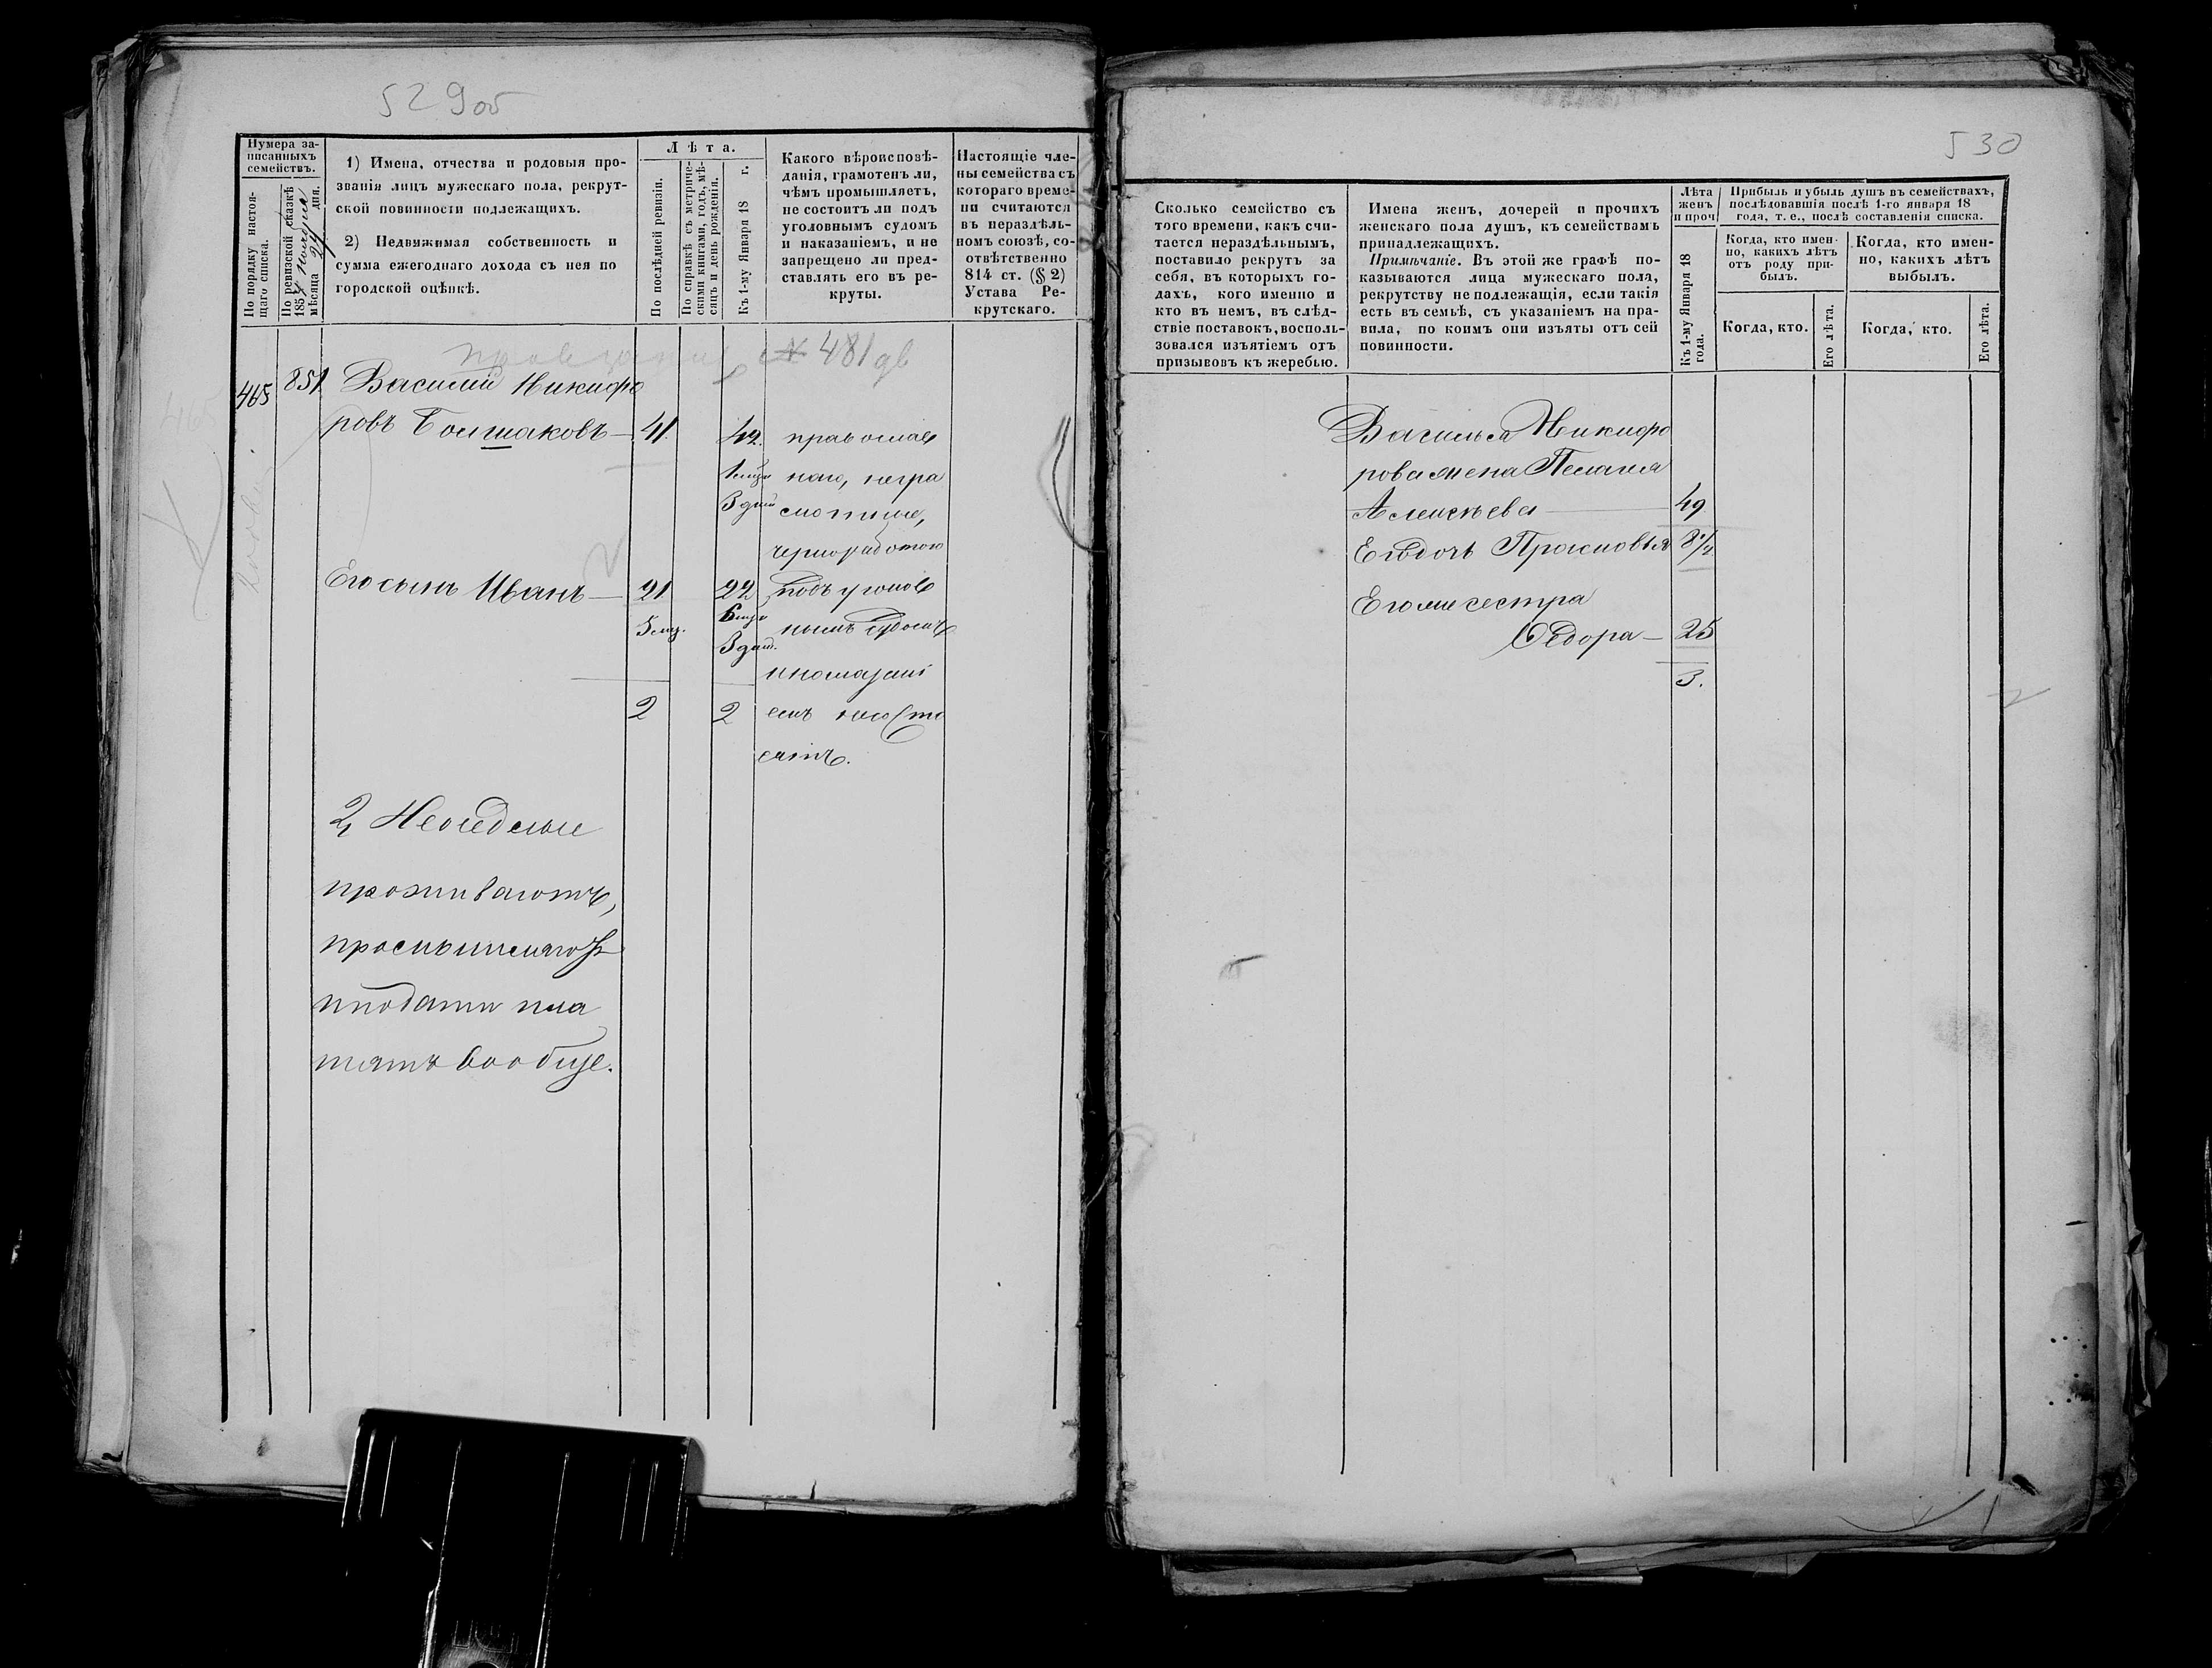 529об
Нумера за-
писанныхъ
семействъ.
По порядку настоя-
щаго списка.
По ревизской сказкѣ
1857 ноября
мѣсяца 24 дня.
1) Имена, отчества и родовыя про-
званія лицъ мужескаго пола, рекрут-
ской повинности подлежащихъ.
2) Недвижимая собственность и
сумма ежегоднаго дохода съ нея по
городской оцѣнкѣ.
Лѣта.
По послѣдней ревизіи.
По справкѣ съ метриче-
скими книгами, годъ, мѣ-
сяцъ и день рожденія.
Къ 1-му Января 18 г.
Какого вѣроисповѣ-
данія, грамотенъ ли,
чѣмъ промышляетъ,
не состоитъ ли подъ
уголовнымъ судомъ
и наказаніемъ, и не
запрещено ли пред-
ставлять его въ ре-
круты.
Настоящіе чле-
ны семейства съ
котораго време-
ни считаются
въ нераздѣль-
номъ союзѣ, со-
отвѣтственно
814 ст. (§ 2)
Устава Ре-
крутскаго.
№ 481
465
851
Василий Никифо
ровъ Болшаковъ — 41.
Его сынъ Иванъ — 21.
5 мц.
2
49.
1 мцъ
3 дни
22
6 мцъ
3 дни.
2
православ
наго, негра
мотные,
чернработою
подъ уголов
нымъ судомъ
и наказані
емъ не состо
ятъ.
2, Неоседлые
проживаютъ,
и подати пла
тятъ вообще.
530
Сколько семейство съ
того времени, какъ счи-
тается нераздѣльнымъ,
поставило рекрутъ за
себя, въ которыхъ го-
дахъ, кого именно и
кто въ немъ, въ слѣд-
ствіе поставокъ, восполь-
зовался изъятіемъ отъ
призывовъ къ жеребью.
Имена женъ, дочерей и прочихъ
женскаго пола душъ, къ семействамъ
принадлежащихъ.
Примѣчаніе. Въ этой же графѣ по-
казываются лица мужескаго пола,
рекрутству не подлежащія, если такія
есть въ семьѣ, съ указаніемъ на пра-
вила, по коимъ они изъяты отъ сей
повинности.
Лѣта
женъ
и проч
Къ 1-му Января 18
года.
Прибыль и убыль душъ въ семействахъ,
послѣдовавшія послѣ 1-го января 18
года, т. е., послѣ составленія списка.
Когда, кто имен-
но, какихъ лѣтъ
отъ роду при-
былъ.
Когда, кто имен-
но, какихъ лѣтъ
выбылъ.
Когда, кто.
Его лѣта.
Когда, кто.
Его лѣта.
Василья Никифо
рова жена Пелагея
Алексѣева — 49
Его дочь Прасковья 8 1/2
Его же сестра
Федора — 25
3.